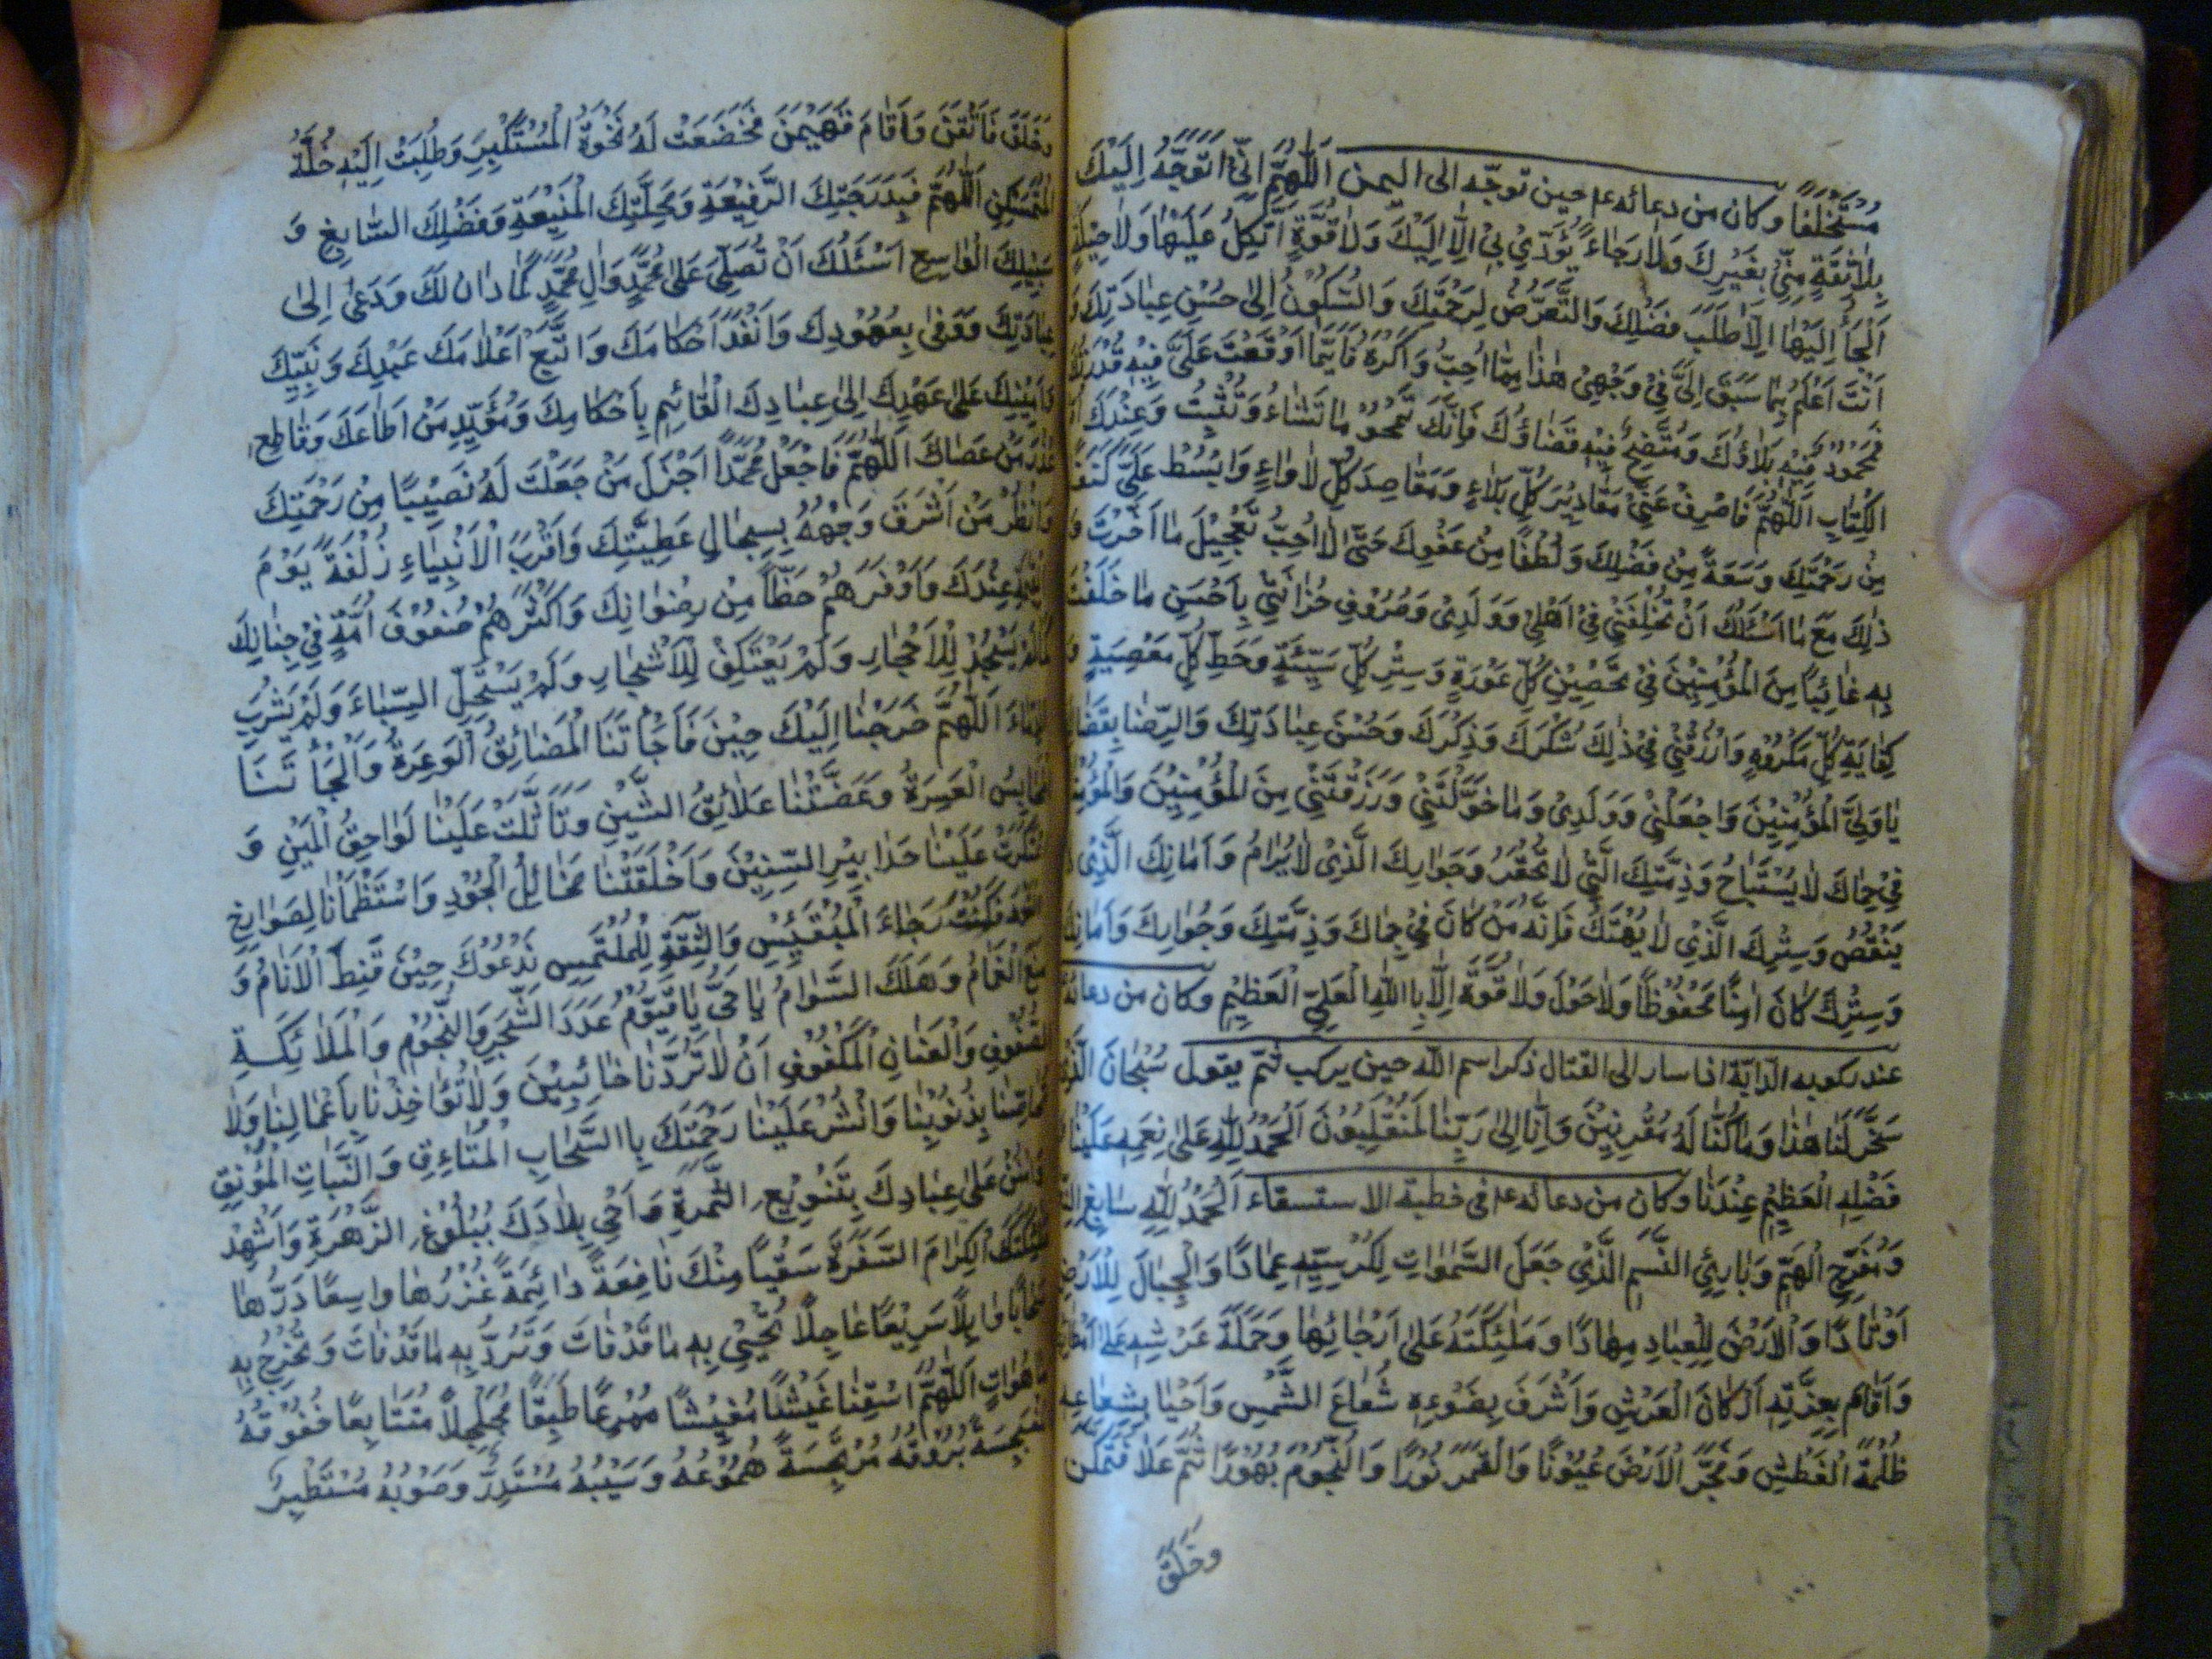 مُسْتَخْلَفًا وكان من دعائه ع م حين توجّه الى اليمن اَللّٰهُمَّ اِنِّىْ اَتَوَجَّهُ اِلَيْكَ
بِلَا ثِقَةٍ مِنِّىْ بِغَيْرِكَ وَلَا رَجَاءٍ يُؤَدِّيْ بِيْ اِلَّا اِلَيْكَ وَلَا قُوَّةٍ اَتَّكِلُ عَلَيْهَا وَلَا حِيْلَةٍ
اَلْجَأُ اِلَيْهَا اِلَّا طَلَبَ فَضْلِكَ وَالتَّعَرُّضَ لِرَحْمَتِكَ وَالسُّكُوْنَ اِلٰى حُسْنِ عِبَادَتِكَ وَ
اَنْتَ اَعْلَمُ بِمَا سَبَقَ اِلَيَّ فِيْ وَجْهِيْ هٰذَا مِمَّا اُحِبُّ وَ اَكْرَهُ فَاَيَّمَا اَوْقَعْتَ عَلَيَّ فِيْهِ قُدْرَتَكَ
فَمَحْمُوْدٌ فِيْهِ بَلَاؤُكَ وَمُتَّضِحٌ فِيْهِ قَضَاؤُكَ فَاِنَّكَ تَمْحُوْ مَا تَشَاءُ وَتُثْبِتُ وَعِنْدَكَ
الْكِتَابِ اَللّٰهُمَّ فَاصْرِفْ عَنِّيْ مَقَادِيْرَ كُلِّ بَلَاءٍ وَمَقَاصِدَ كُلِّ لَاوَاءٍ وَابْسُطْ عَلَيَّ كَنَفًا
مِنْ رَحْمَتِكَ وَسَعَةً مِنْ فَضْلِكَ وَلُطْفًا مِنْ عَفْوِكَ حَتَّى لَا اُحِبَّ تَعْجِيْلَ مَا اَخَّرْتَ وَ
ذٰلِكَ مَعَ مَا اَسْئَلُكَ اَنْ تَخْلِفَنِيْ فِيْ اَهْلِيْ وَوَلَدِىْ وَصُرُوْفِ حُزَانَتِيْ بِاَحْسَنِ مَا خَلَفْتَ
بِهِ غَائِبًا مِنَ الْمُؤْمِنِيْنَ فِيْ تَحْصِيْنِ كُلِّ عَوْرَةٍ وَسِتْرِ كُلِّ سَيِّئَةٍ وَحَطِّ كُلِّ مَعْصِيَةٍ وَ
كِفَايَةِ كُلِّ مَكْرُوْهٍ وَارْزُقْنِيْ فِيْ ذٰلِكَ شُكْرَكَ وَذِكْرَكَ وَحُسْنَ عِبَادَتِكَ وَالرِّضَا بِقَضَا
يَا وَلِيَّ الْمُؤْمِنِيْنَ وَاجْعَلْنِيْ وَوَلَدِىْ وَمَا خَوَّلْتَنِيْ وَرَزَقْتَنِيْ مِنَ الْمُؤْمِنِيْنَ
فِيْ حِمَاكَ لَا يُسْتَبَاحُ وَذِمَّتِكَ الَّتِيْ لَا تُخْفَرُ وَجَوَارِكَ الَّذِىْ لَا يُرَامُ وَاَمَانِكَ الَّذِىْ
يَنْقُصُ وَسِتْرِكَ الَّذِىْ لَا يُهْتَكُ فَاِنَّهُ مَنْ كَانَ فِيْ حِمَاكَ وَذِمَّتِكَ وَجُوَارِكَ وَاَمَانِكَ
وَسِتْرِكَ كَانَ اٰمِنًا مَحْفُوْظًا وَلَا حَوْلَ وَلَا قُوَّةَ اِلَّا بِاللّٰهِ الْعَلِيِّ الْعَظِيْمِ وكان من دعائه
عند ركوبه الدّابّة اذا سار الى القتال ذكر اسم الله حين يركب ثم يقول سُبْحَانَ الَّذِيْ
سَخَّرَ لَنَا هٰذَا وَمَا كُنَّا لَهُ مُقْرِنِيْنَ وَاِنَّا اِلٰى رَبِّنَا لَمُنْقَلِبُوْنَ اَلْحَمْدُ لِلّٰهِ عَلٰى نِعَمِهِ عَلَيْنَا
فَضْلِهِ الْعَظِيْمِ عِنْدَنَا وكان من دعائه ع م فى خطبة الاستسقاء اَلْحَمْدُ لِلّٰهِ سَابِغِ
وَمُفَرِّجِ الْهَمِّ وَبَارِئِ النَّسَمِ الَّذِيْ جَعَلَ السَّمٰوَاتِ لِكُرْسِيِّهِ عِمَادًا وَالْجِبَالَ لِلْاَرْضِ
اَوْتَادًا وَالْاَرْضَ لِلْعِبَادِ مِهَادًا وَمَلٰئِكَتَهُ عَلٰى اَرْجَائِهَا وَحَمَلَةَ عَرْشِهِ عَلٰى
وَاَقَامَ بِعِزَّتِهِ اَرْكَانَ الْعَرْشِ وَاَشْرَفَ بِضَوْءِهِ شُعَاعَ الشَّمْسِ وَاَحْيَا بِشُعَاعِهِ
ظُلْمَةَ الْغَطْشِ وَفَجَّرَ الْاَرْضَ عُيُوْنًا وَالْقَمَرَ نُوْرًا وَالنُّجُوْمَ بُهُوْرًا ثُمَّ عَلَا فَتَمَكَّنَ
وَخَلَقَ
وَخَلَقَ فَاَتْقَنَ وَاَقَامَ فَهَيْمَنَ فَخَضَعَتْ لَهُ نَخْوَةُ الْمُسْتَكْبِرِ وَطُلِبَتْ اِلَيْهِ خُلَّةُ
الْمُتَمَسْكِنِ اَللّٰهُمَّ فَبِدَرَجَتِكَ الرَّفِيْعَةِ وَمَحَلَّتِكَ الْمَنِيْعَةِ وَفَضْلِكَ السَّابِغِ وَ
سَبِيْلِكَ الْوَاسِعِ اَسْئَلُكَ اَنْ تُصَلِّيَ عَلٰى مُحَمَّدٍ وَاٰلِ مُحَمَّدٍ كَمَا دَانَ لَكَ وَدَعٰى اِلٰى
عِبَادَتِكَ وَوَفٰى بِعُهُوْدِكَ وَاَنْفَذَ اَحْكَامَكَ وَاتَّبَعَ اَعْلَامَكَ عَبْدِكَ وَنَبِيِّكَ
وَاَمِيْنِكَ عَلٰى عَهْدِكَ اِلٰى عِبَادِكَ الْقَائِمِ بِاَحْكَامِكَ وَمُؤَيِّدِ مَنْ اَطَاعَكَ وَقَاطِعِ
عُذْرِ مَنْ عَصَاكَ اَللّٰهُمَّ فَاجْعَلْ مُحَمَّدًا اَجْزَلَ مَنْ جَعَلْتَ لَهُ نَصِيْبًا مِنْ رَحْمَتِكَ
وَاَنْضَرَ مَنْ اَشْرَقَ وَجْهُهُ بِسِجَالِ عَطِيَّتِكَ وَاَقْرَبَ الْاَنْبِيَاءِ زُلْفَةً يَوْمَ
عِنْدَكَ وَاَوْفَرَهُمْ حَظًّا مِنْ رِضْوَانِكَ وَاَكْثَرَهُمْ صُفُوْفَ اُمَّةٍ فِيْ جِنَانِكَ
كَمَا لَمْ يَسْجُدْ لِلْاَحْجَارِ وَلَمْ يَعْتَكِفْ لِلْاَشْجَارِ وَلَمْ يَسْتَحِلِّ السِّبَاءَ وَلَمْ يَشْرَبِ
الدِّمَاءَ اَللّٰهُمَّ خَرَجْنَا اِلَيْكَ حِيْنَ فَاجَأَتْنَا الْمَضَائِقُ الْوَعِرَةُ وَاَلْجَأَتْنَا
الْمَحَابِسُ الْعَسِرَةُ وَعَضَّتْنَا عَلَائِقُ الشَّيْنِ وَتَأَثَّلَتْ عَلَيْنَا لَوَاحِقُ الْمَيْنِ وَ
اعْتَكَرَتْ عَلَيْنَا حَدَابِيْرُ السِّنِيْنَ وَاَخْلَفَتْنَا مَخَائِلُ الْجُوْدِ وَاسْتَظْمَأْنَا لِصَوَارِخِ
فَكُنْتَ رَجَاءَ الْمُبْتَئِسِ وَالثِّقَةَ لِلْمُلْتَمِسِ نَدْعُوْكَ حِيْنَ قَنِطَ الْاَنَامُ وَ
مُنِعَ الْغَمَامُ وَهَلَكَ السَّوَامُ يَا حَيُّ يَا قَيُّوْمُ عَدَدَ الشَّجَرِ وَالنُّجُوْمِ وَالْمَلَائِكَةِ
الصُّفُوْفِ وَالْعَنَانِ الْمَكْفُوْفِ اَنْ لَا تَرُدَّنَا خَائِبِيْنَ وَلَا تُؤَاخِذْنَا بِاَعْمَالِنَا وَلَا
بِذُنُوْبِنَا وَانْشُرْ عَلَيْنَا رَحْمَتَكَ بِالسَّحَابِ الْمُتَّاءِقِ وَالنَّبَاتِ الْمُؤْنِقِ
وَامْنُنْ عَلٰى عِبَادِكَ بِتَنْوِيْعِ الثَّمَرَةِ وَاَحْيِ بِلَادَكَ بِبُلُوْغِ الزَّهْرَةِ وَاَشْهِدْ
مَلٰئِكَتَكَ الْكِرَامَ السَّفَرَةَ سَقْيًا مِنْكَ نَافِعَةً دَائِمَةً غُزْرُهَا وَاسِعًا دَرُّهَا
سَحَابًا وَابِلًا سَرِيْعًا عَاجِلًا تُحْيِيْ بِهِ مَا قَدْ مَاتَ وَتَرُدُّ بِهِ مَا قَدْ فَاتَ وَتُخْرِجُ بِهِ
اَللّٰهُمَّ اسْقِنَا غَيْثًا مُغِيْثًا مُمْرِعًا طَبَقًا مُجَلْجِلًا مُتَتَابِعًا خُفُوْقُهُ
مُنْبَجِسَةً بُرُوْقُهُ مُرْتَجِسَةً هُمُوْعُهُ وَسَيْبُهُ مُسْتَدِرٌّ وَصَوْبُهُ مُسْتَطِيْرٌ